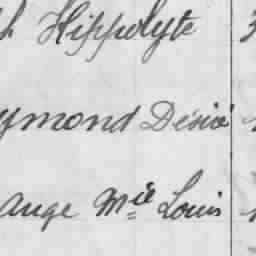 h Hippolyte
ymond Désiré
ange Mie Louis